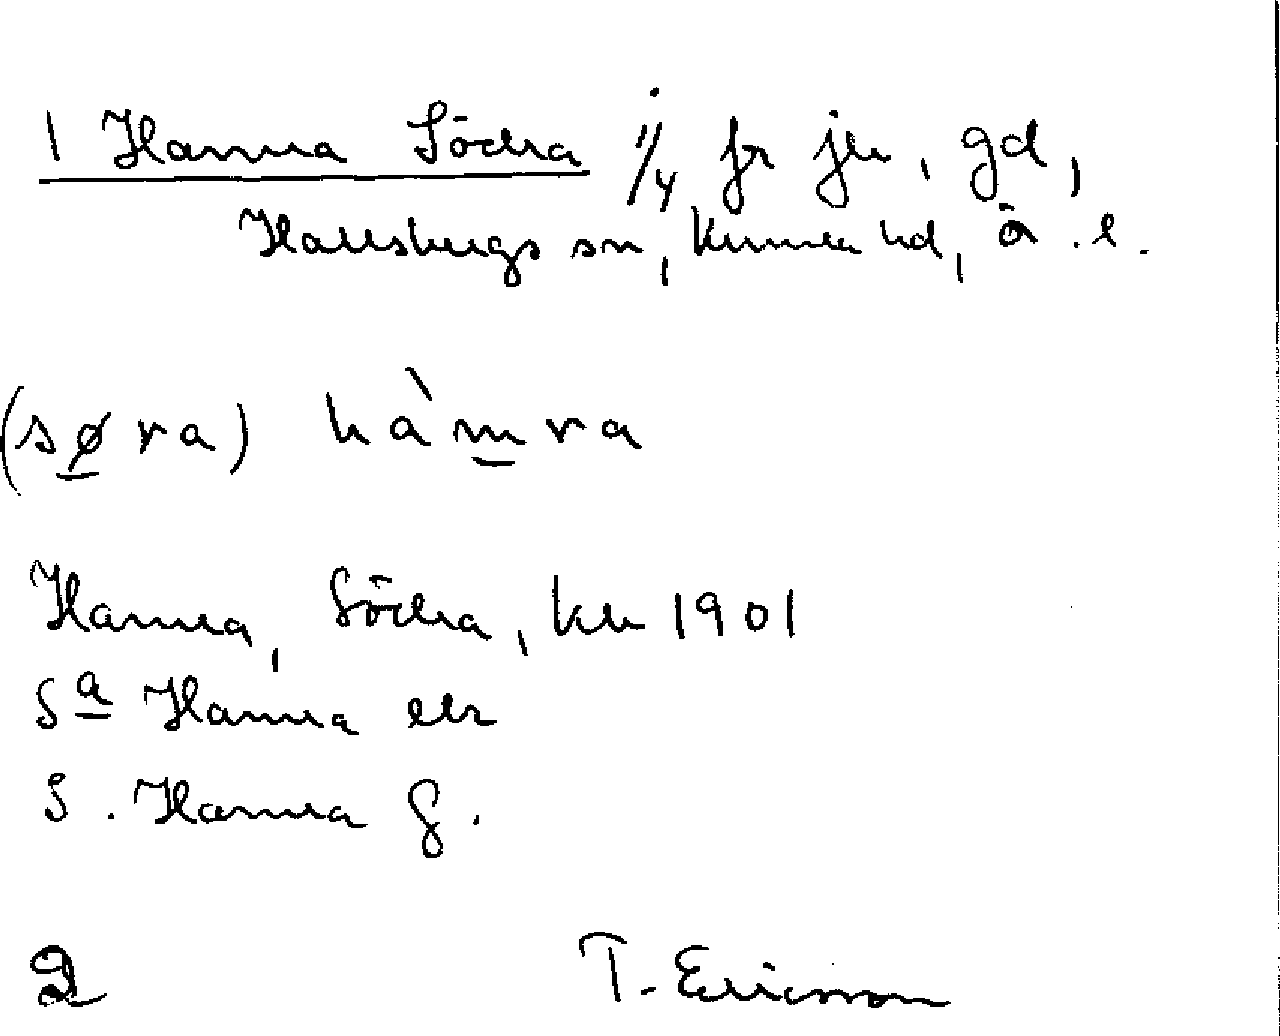 1 Hamra Södra 1/4 fr, gd,
Hallsbergs sn, Kumla hd, Ö. l.
(søra) hàmra
Hamra, Södra, 1901
Sa Hamra elr
S. Hamra g.
2 T. Ericsson